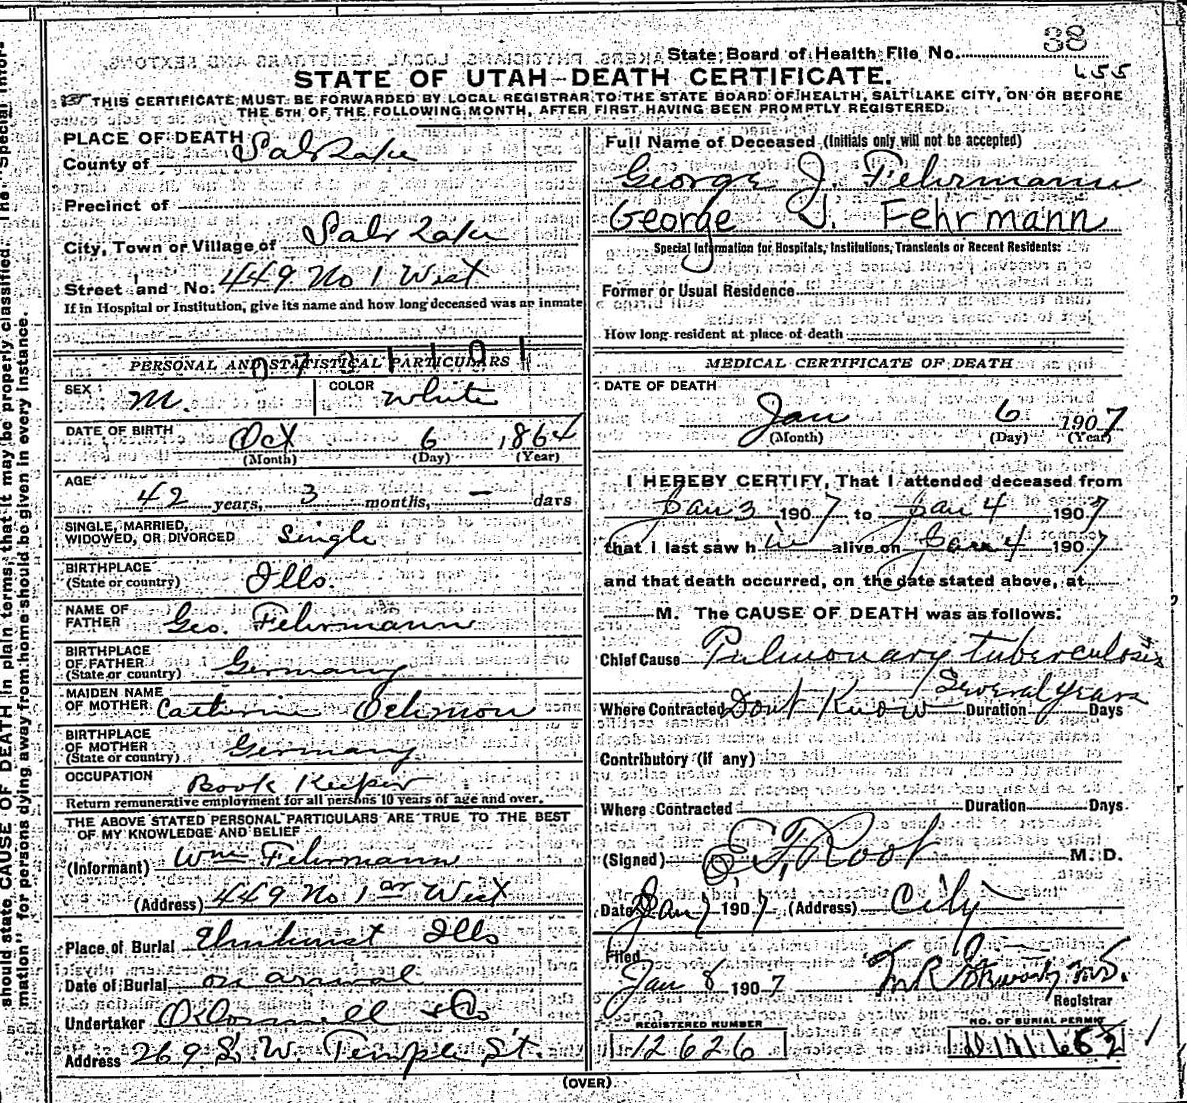 38
State Board of Health File No.
455
STATE OF UTAH—DEATH CERTIFICATE.
THIS CERTIFICATE MUST BE FORWARDED BY LOCAL REGISTRAR TO THE STATE BOARD OF HEALTH, SALT LAKE CITY, ON OR BEFORE
THE 5TH OF THE FOLLOWING MONTH, AFTER FIRST HAVING BEEN PROMPTLY REGISTERED.
PLACE OF DEATH
County of Salt Lake
Precinct of
City, Town or Village of Salt Lake
Street and No. 449 No 1 West
If in Hospital or Institution, give its name and how long deceased was an inmate
PERSONAL AND STATISTICAL PARTICULARS
SEX M.
COLOR White
DATE OF BIRTH Oct 6 1864
(Month) (Day) (Year)
AGE 42 years, 3 months, — days
SINGLE, MARRIED,
WIDOWED, OR DIVORCED Single
BIRTHPLACE
(State or country) Ills.
NAME OF
FATHER Geo. Fehrmann
BIRTHPLACE
OF FATHER
(State or country) Germany
MAIDEN NAME
OF MOTHER Catherine
BIRTHPLACE
OF MOTHER
(State or country) Germany
OCCUPATION Book Keeper
Return remunerative employment for all persons 10 years of age and over.
THE ABOVE STATED PERSONAL PARTICULARS ARE TRUE TO THE BEST
OF MY KNOWLEDGE AND BELIEF
(Informant) Wm Fehrmann
(Address) 449 No 1st West
Place of Burial Elmhurst Ills
Date of Burial on arrival
Undertaker
Address 269 S. W. Temple St.
Full Name of Deceased (Initials only will not be accepted)
George J. Fehrmann
George J. Fehrmann
Special Information for Hospitals, Institutions, Transients or Recent Residents:
Former or Usual Residence
How long resident at place of death
MEDICAL CERTIFICATE OF DEATH
DATE OF DEATH
Jan 6 1907
(Month) (Day) (Year)
I HEREBY CERTIFY, That I attended deceased from
Jan 3 1907 to Jan 4 1907
that I last saw him alive on Jan 4 1907
and that death occurred, on the date stated above, at
M. The CAUSE OF DEATH was as follows:
Chief Cause Pulmonary tuberculosis
Several years
Where Contracted Dont Know Duration Days
Contributory (if any)
Where Contracted Duration Days
(Signed) Root M. D.
Date Jan 7 1907 (Address) City
Filed
Jan 8 1907
Registrar
REGISTERED NUMBER
12626
NO. OF BURIAL PERMIT
(OVER)
should state CAUSE OF DEATH in plain terms, that it may be properly classified. The "Special Infor-
mation" for persons dying away from home should be given in every instance.